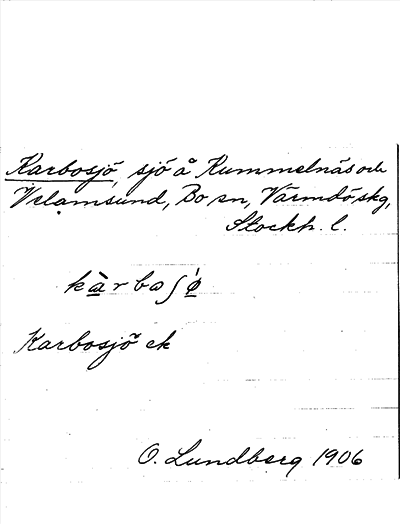 Karbosjö, sjö å Kummelnäs och
Velamsund, Bo sn, Värmdö skg,
Stockh. l.
kàrbaʃǿ
Karbosjö ek
O. Lundberg 1906